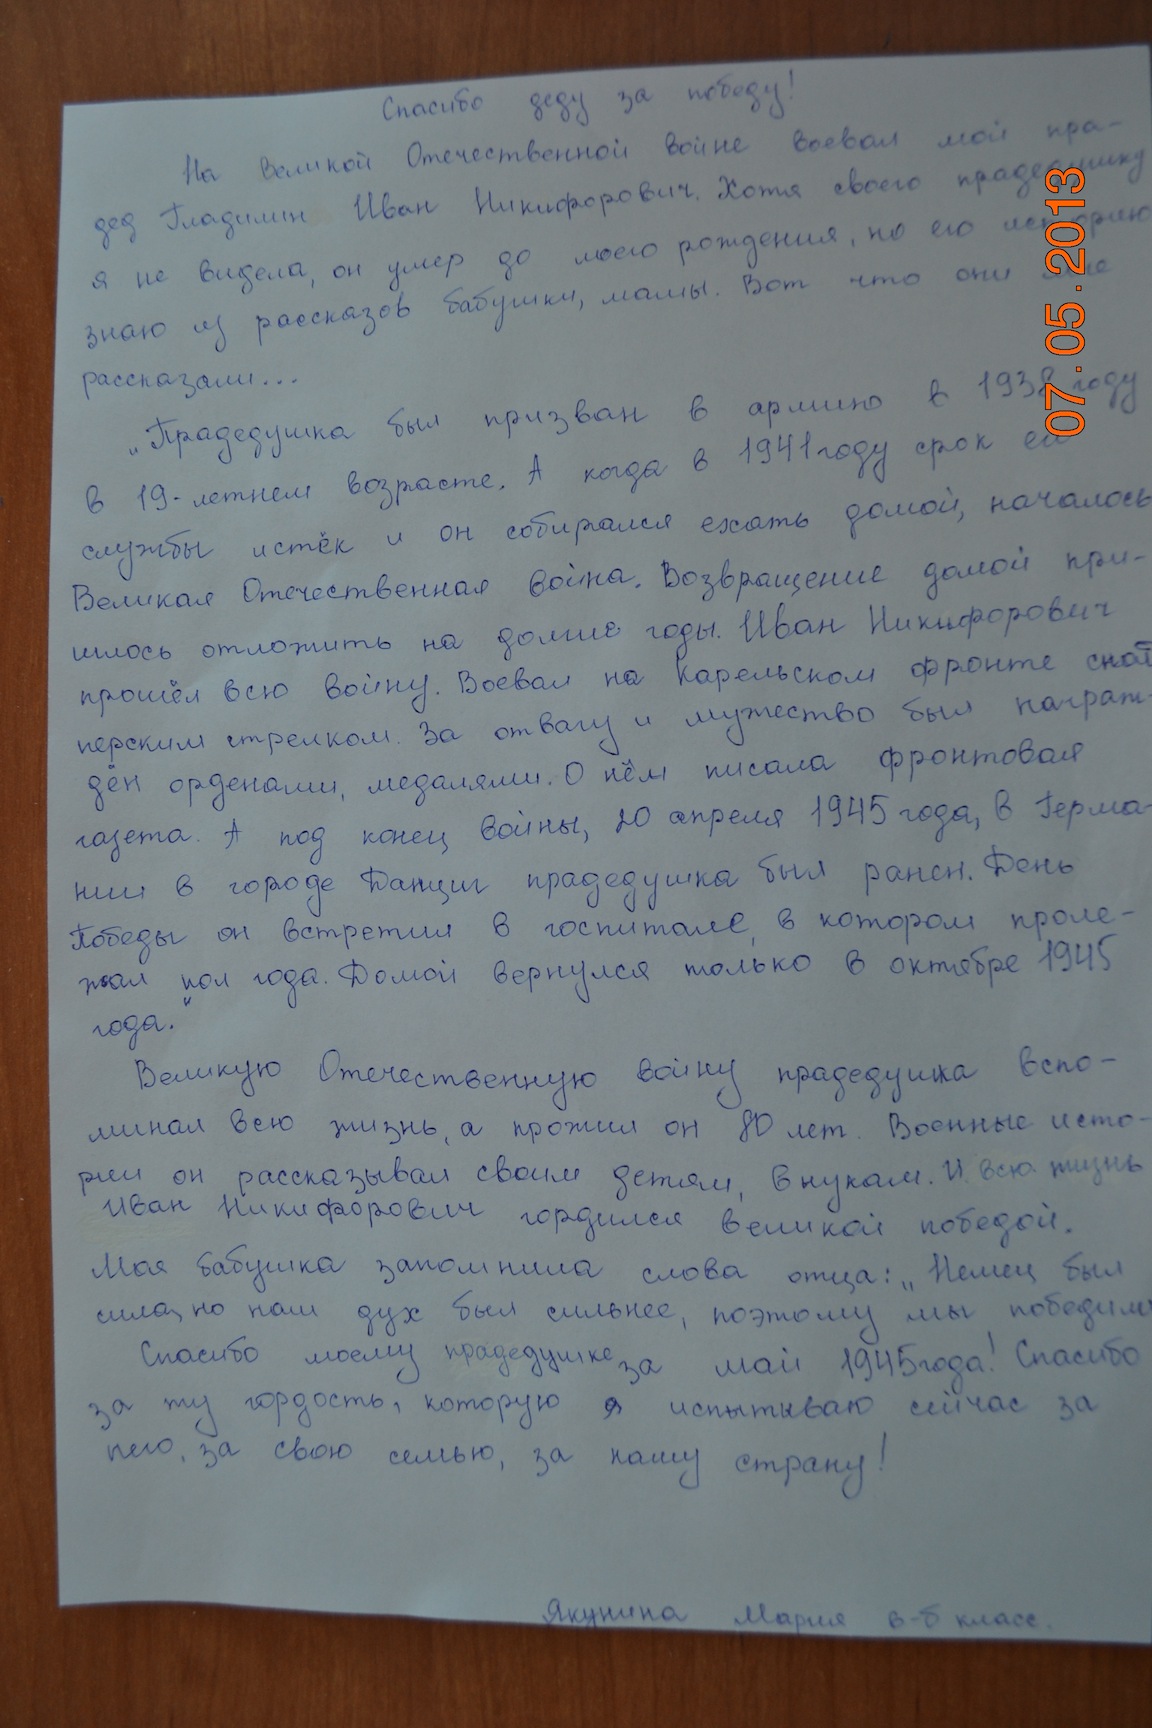 Спасибо деду за победу!
На Великой Отечественной войне воевал мой пра-
дед Гладилин Иван Никифорович. Хотя своего прадедушку
я не видела, он умер до моего рождения, но его историю
знаю из рассказов бабушки, мамы. Вот что они мне
рассказали...
„Прадедушка был призван в армию в 1938 году
в 19-летнем возрасте. А когда в 1941 году срок его
службы истёк и он собирался ехать домой, началось
Великая Отечественная война. Возвращение домой при-
шлось отложить на долгие годы. Иван Никифорович
прошёл всю войну. Воевал на Карельском фронте снай
перским стрелком. За отвагу и мужество был награж-
дён орденами, медалями. О нём писала фронтовая
газета. А под конец войны, 20 апреля 1945 года, в Герма-
нии в городе Данциг прадедушка был ранен. День
Победы он встретил в госпитале, в котором проле-
жал пол года. Домой вернулся только в октябре 1945
года."
Великую Отечественную войну прадедушка вспо-
минал всю жизнь, а прожил он 80 лет. Военные исто-
рии он рассказывал своим детям, внукам. И всю жизнь
Иван Никифорович гордился великой победой.
Моя бабушка запомнила слова отца: „Немец был
сила, но наш дух был сильнее, поэтому мы победили
Спасибо моему прадедушке за май 1945 года! Спасибо
за ту гордость, которую я испытываю сейчас за
него, за свою семью, за нашу страну!
Якунина Мария 6-б класс.
07.05.2013